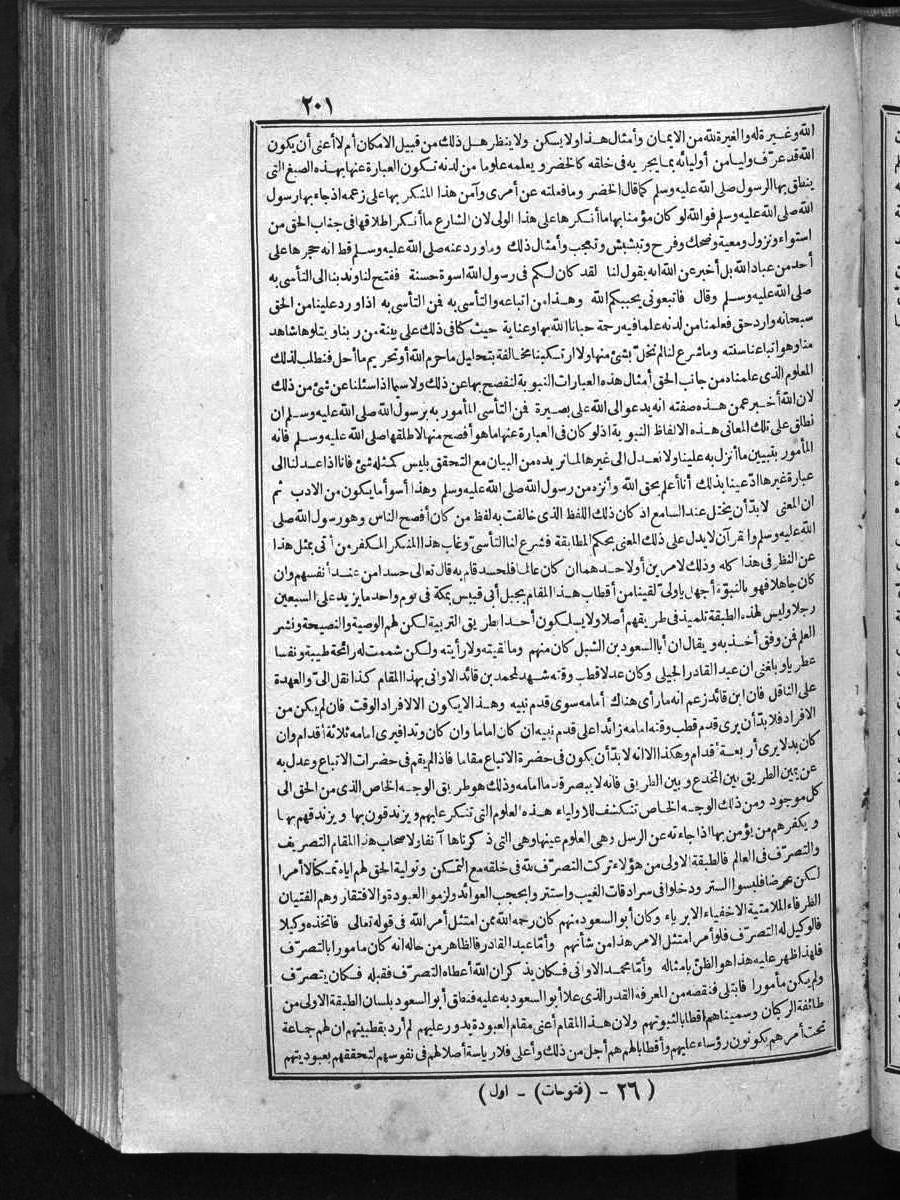 ٢٠١
الله وغيرة له والغيرة لله من الايمان وأمثال هذا ولا يسكن ولا ينظر هل ذلك من قبيل الامكان أم لا أعنى أن يكون
الله قد عرّف وليا من أوليائه بما يجريه فى خلقه كالخضر ويعلمه علوما من لدنه تكون العبارة عنها بهذه الصيغ التى
ينطق بها الرسول صلى الله عليه وسلم كما قال الخضر وما فعلته عن أمرى وآمن هذا المنكر بها على زعمه اذ جاء بها رسول
الله صلى الله عليه وسلم فوالله لو كان مؤمنا بها ما أنكرها على هذا الولى لان الشارع ما أنكر اطلاقها فى جناب الحق من
استواء ونزول ومعية وضحك وفرح وتبشبش وتعجب وأمثال ذلك وما ورد عنه صلى الله عليه وسلم قط انه حجرها على
أحد من عباد الله بل أخبر عن الله انه يقول لنا لقد كان لكم فى رسول الله اسوة حسنة ففتح لنا وندبنا الى التأسى به
صلى الله عليه وسلم وقال فاتبعونى يحببكم الله وهذا من اتباعه والتأسى به فمن التأسى به اذا ورد علينا من الحق
سبحانه وارد حق فعلمنا من لدنه علما فيه رحمة حبانا الله بها وعناية حيث كنا فى ذلك على بينة من ربنا ويتلوها شاهد
منا وهو اتباعنا سنته وما شرع لنا لم نخلّ بشئ منها ولا ارتكبنا مخالفة بتحليل ما حرم الله أو تحريم ما أحل فنطلب لذلك
المعلوم الذى علمناه من جانب الحق أمثال هذه العبارات النبوية لنفصح بها عن ذلك ولا سيما اذا سئلنا عن شئ من ذلك
لان الله أخبر عمن هذه صفته انه يدعو الى الله على بصيرة فمن التأسى المأمور به برسول الله صلى الله عليه وسلم ان
نطلق على تلك المعانى هذه الالفاظ النبوية اذ لو كان فى العبارة عنها ما هو أفصح منها لاطلقها صلى الله عليه وسلم فانه
المأمور بتبيين ما أنزل به علينا ولا نعدل الى غيرها لما نريده من البيان مع التحقق بليس كمثله شئ فانا اذا عدلنا الى
عبارة غيرها ادّعينا بذلك أنا أعلم بحق الله وأنزه من رسول الله صلى الله عليه وسلم وهذا أسوأ ما يكون من الادب ثم
ان المعنى لا بدّ أن يختل عند السامع اذ كان ذلك اللفظ الذى خالفت به لفظ من كان أفصح الناس وهو رسول الله صلى
الله عليه وسلم والقرآن لا يدل على ذلك المعنى بحكم المطابقة فشرع لنا التأسىّ وغاب هذا المنكر المكفر من أتى بمثل هذا
عن النظر فى هذا كله وذلك لامرين أو لاحدهما ان كان عالما فلحسد قام به قال تعالى حسدا من عند أنفسهم وان
كان جاهلا فهو بالنبوّة أجهل يا ولىّ لقينا من أقطاب هذا المقام بجبل أبى قبيس بمكة فى يوم واحد ما يزيد على السبعين
رجلا وليس لهذه الطبقة تلميذ فى طريقهم أصلا ولا يسلكون أحدا طريق التربية لكن لهم الوصية والنصيحة ونشر
العلم فمن وفق أخذ به ويقال ان أبا السعود بن الشبل كان منهم وما لقيته ولا رأيته ولكن شممت له رائحة طيبة ونفسا
عطريا وبلغنى ان عبد القادر الجيلى وكان عدلا قطب وقته شهد لمحمد بن قائد الاوانى بهذا المقام كذا نقل الىّ والعهدة
على الناقل فان ابن قائد زعم انه ما رأى هناك أمامه سوى قدم نبيه وهذا لا يكون الا لافراد الوقت فان لم يكن من
الافراد فلا بدّ أن يرى قدم قطب وقته أمامه زائدا على قدم نبيه ان كان اماما وان كان وتدا فيرى أمامه ثلاثة أقدام وان
كان بدلا يرى أربعة أقدام وهكذا الا انه لا بدّ أن يكون فى حضرة الاتباع مقاما فاذا لم يقم فى حضرات الاتباع وعدل به
عن يمين الطريق بين المخدع وبين الطريق فانه لا يبصر قدما أمامه وذلك هو طريق الوجه الخاص الذى من الحق الى
كل موجود ومن ذلك الوجه الخاص تنكشف للاولياء هذه العلوم التى تنكر عليهم ويزندقون بها ويزندقهم بها
ويكفرهم من يؤمن بها اذا جاءته عن الرسل وهى العلوم عينها وهى التى ذكرناها آنفا ولاصحاب هذا المقام التصريف
والتصرّف فى العالم فالطبقة الاولى من هؤلاء تركت التصرّف لله فى خلقه مع التمكن وتولية الحق لهم اياه تمكنا لا أمرا
لكن عرضا فلبسوا الستر ودخلوا فى سرادقات الغيب واستتروا بحجب العوائد ولزموا العبودة والافتقار وهم الفتيان
الظرفاء الملامتية الاخفياء الابرياء وكان أبو السعود منهم كان رحمه الله ممن امتثل أمر الله فى قوله تعالى فاتخذه وكيلا
فالوكيل له التصرّف فلو أمر امتثل الامر هذا من شأنهم وأمّا عبد القادر فالظاهر من حاله انه كان مأمورا بالتصرّف
فلهذا ظهر عليه هذا هو الظنّ بامثاله وأمّا محمد الاوانى فكان يذكر ان الله أعطاه التصرّف فقبله فكان يتصرّف
ولم يكن مأمورا فابتلى فنقصه من المعرفة القدر الذى علا أبو السعود به عليه فنطق أبو السعود بلسان الطبقة الاولى من
طائفة الركبان وسميناهم أقطابا لثبوتهم ولان هذا المقام أعنى مقام العبودة يدور عليهم لم أرد بقطبيتهم ان لهم جماعة
تحت أمرهم يكونون رؤساء عليهم وأقطابا لهم هم أجل من ذلك وأعلى فلا رياسة أصلا لهم فى نفوسهم لتحققهم بعبوديتهم
( ٢٦ - (فتوحات) - اول )